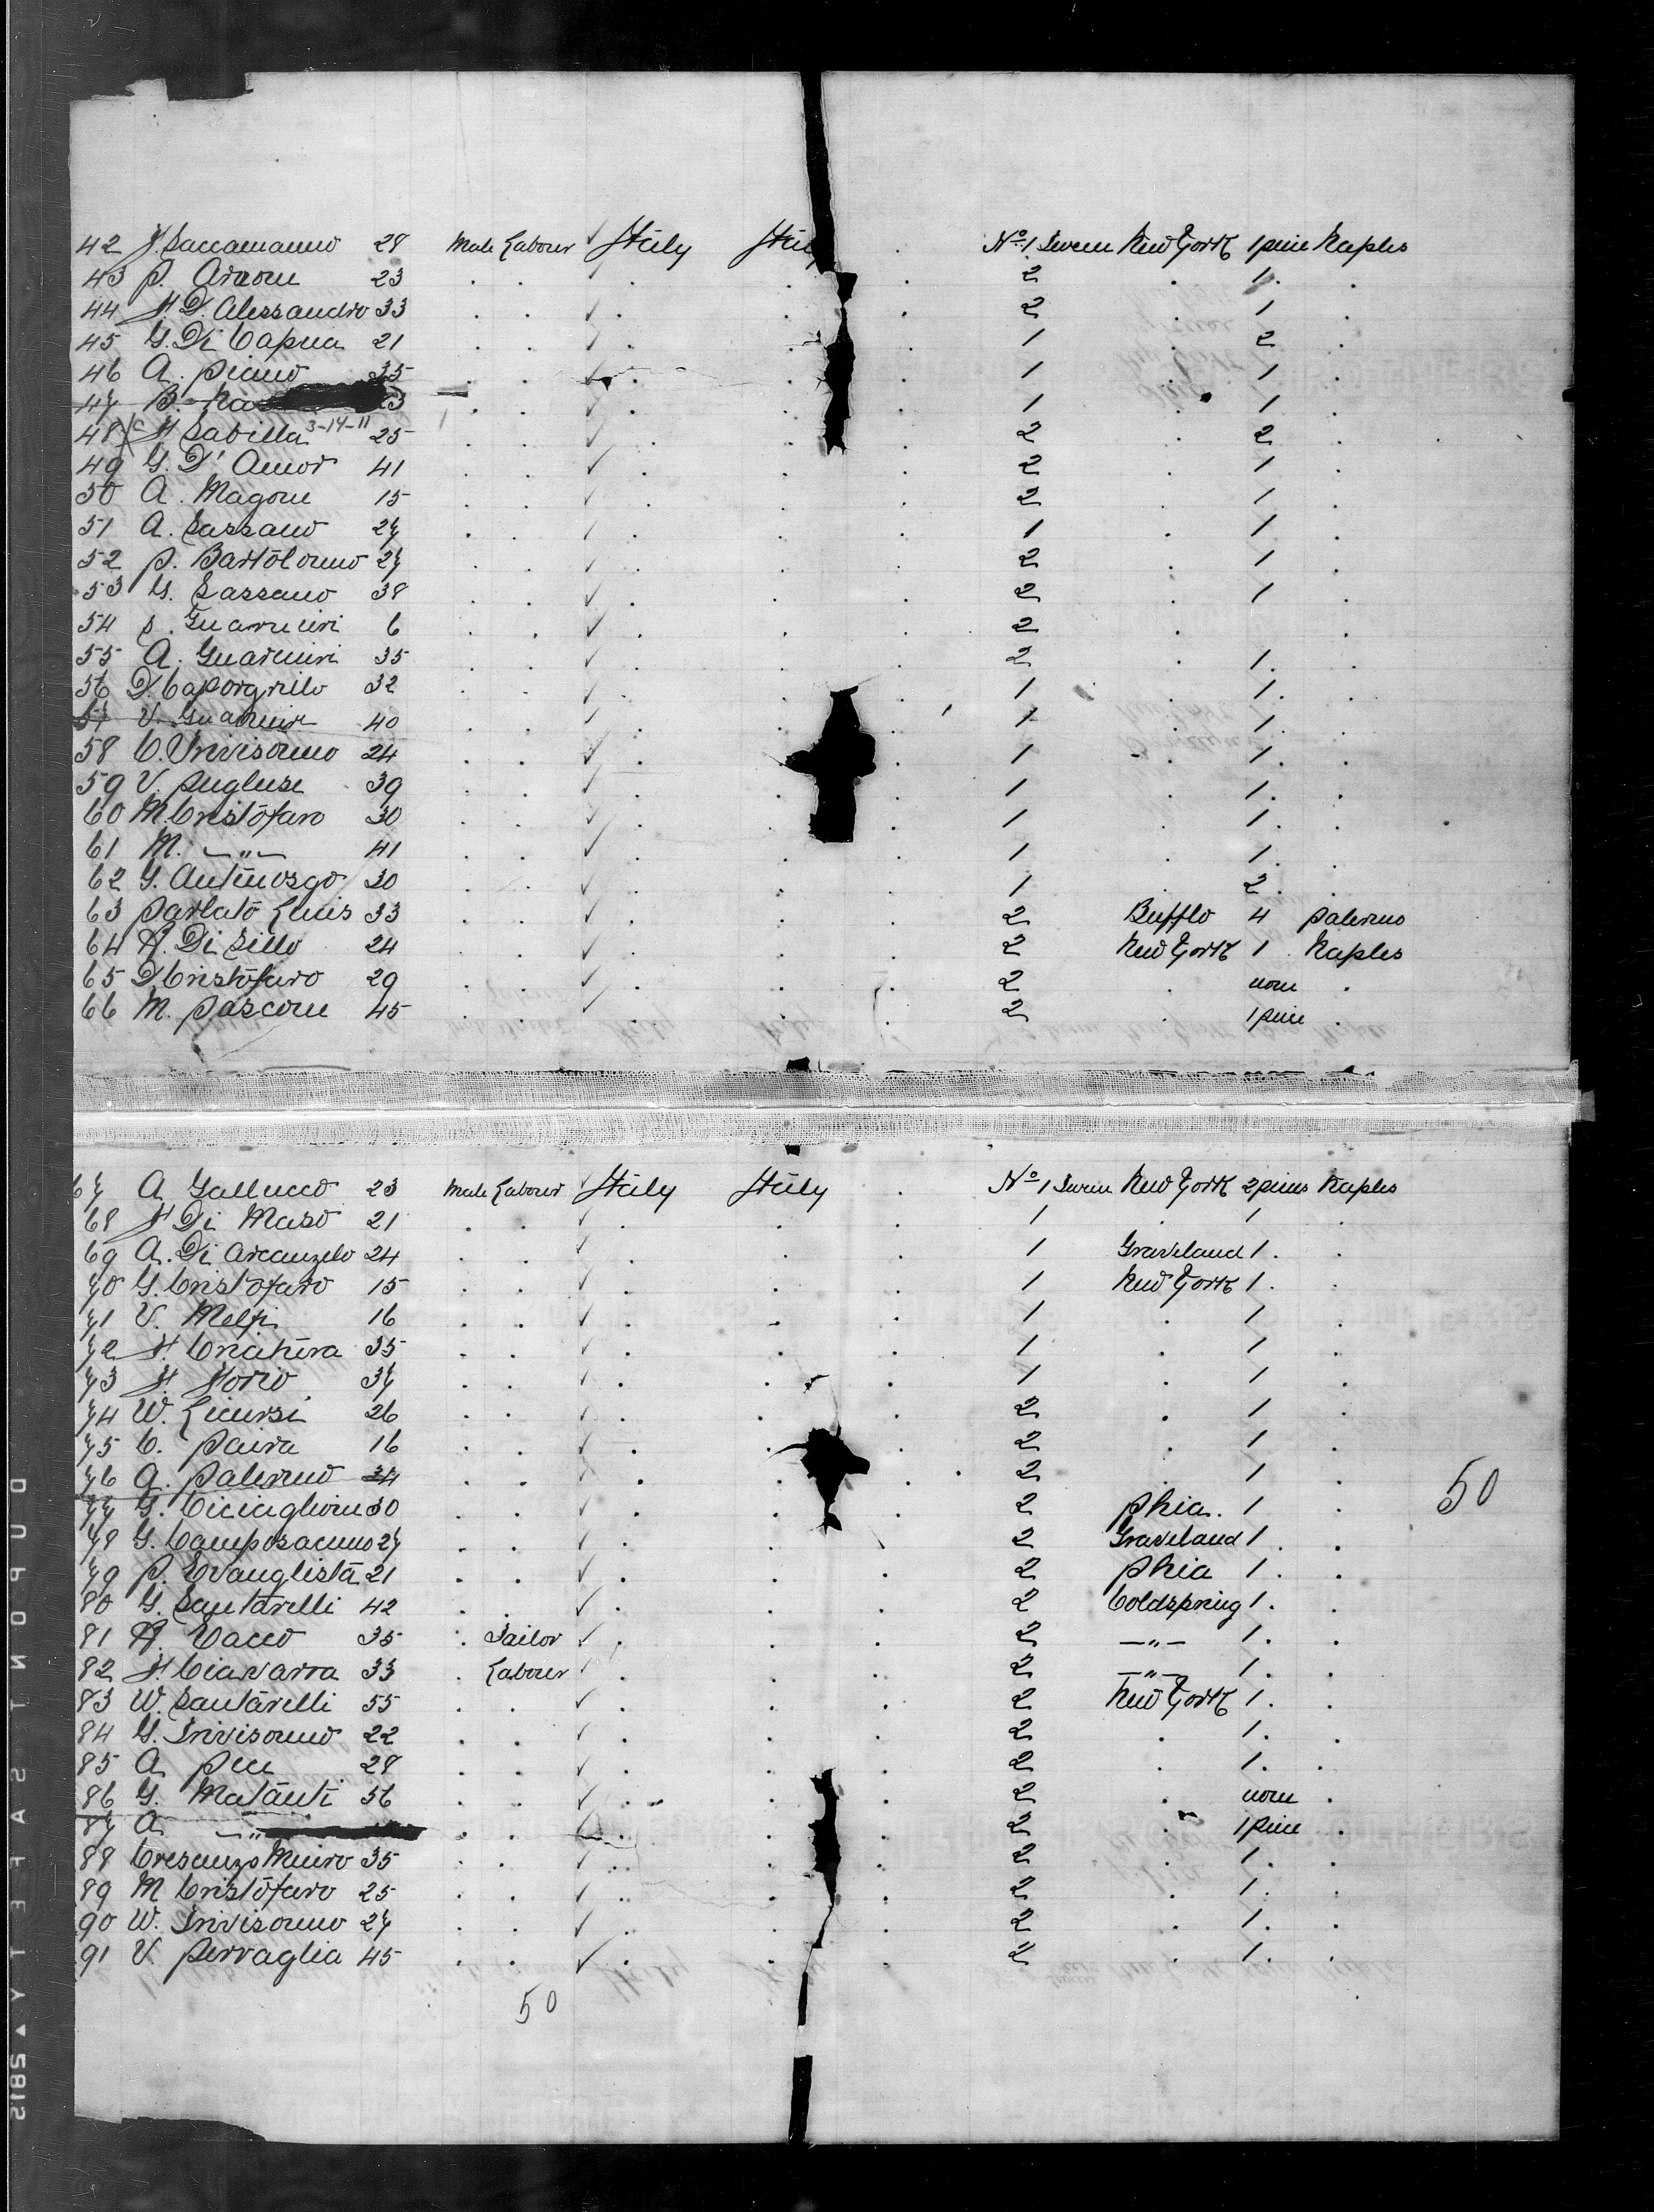 42 F. Saccamanno 28 Male Labour ✓ Italy Italy . No 1 New York 1 piece Naples
43 P. 23 . . ✓ . . 2 . 1 .
44 F. D. Alessandro 33 . . ✓ . . . 2 . 1 .
45 G. Di Capua 21 . . ✓ . . 1 . 2 .
46 A. Piano 35 . . ✓ . . . 1 . 1 .
47 B. Na 3 . . ✓ . . . 1 . 1 .
48 F Sabilla 3-14-11 25 . . ✓ . . . 2 . 2 .
49 G. D' Amor 41 . . ✓ . . . 2 . 1 .
50 A. Magone 15 . . ✓ . . . 2 . 1 .
51 A. Sassano 27 . . ✓ . . . 1 . 1 .
52 P. Bartolomeo 27 . . ✓ . . . 2 . 1 .
53 G. Sassano 38 . . ✓ . . . 2 . 1 .
54 S. Guarnieri 6 . . ✓ . . . 2 . .
55 A. Guarnieri 35 . . ✓ . . . 2 . 1 .
56 D. Caporgrillo 32 . . ✓ . . 1 . 1 .
57 V. Guarnieri 40 . . ✓ . . . 1 . 1 .
58 C. Trivisonno 24 . . ✓ . . 1 . 1 .
59 V. Pugliese 39 . . ✓ . . . 1 . 1 .
60 M. Cristofaro 30 . . ✓ . . . 1 . 1 .
61 M. -"- 41 . . ✓ . . . 1 . 1 .
62 G. 30 . . ✓ . . . 1 . 2 .
63 Parlato Luis 33 . . ✓ . . . 2 Bufflo 4 Palermo
64 A. Di Lillo 24 . . ✓ . . . 2 New York 1 Naples
65 D Cristofaro 29 . . ✓ . . . 2 . none .
66 M. Pascone 45 . . ✓ . . . 2 . 1 piece .
67 A Gallucco 23 Male Labour ✓ Italy Italy . No 1 New York 2 pieces Naples
68 F Di Maso 21 . . ✓ . . . 1 . 1 .
69 A. Di Arcangelo 24 . . ✓ . . . 1 Graveland 1 .
70 G. Cristofaro 15 . . ✓ . . . 1 New York 1 .
71 V. Melfi 16 . . ✓ . . . 1 . 1 .
72 F. 35 . . ✓ . . . 1 . 1 .
73 F. Florio 37 . . ✓ . . . 1 . 1 .
74 W. Licursi 26 . . ✓ . . . 2 . 1 .
75 C. Paira 16 . . ✓ . . . 2 . 1 .
76 A. Palermo 34 . . ✓ . . . 2 . 1 .
77 G. 30 . . ✓ . . . 2 Phia. 1 . 50
78 G. 27 . . ✓ . . 2 Graveland 1 .
79 P. Evanglista 21 . . ✓ . . . 2 Phia 1 .
80 G. Santarelli 42 . . ✓ . . . 2 Coldspring 1 .
81 A. Vacco 35 . Tailor ✓ . . . 2 -"- 1 .
82 F. Ciavarra 33 . Labour ✓ . . . 2 -"- 1 .
83 W. Santarelli 55 . . ✓ . . . 2 New York 1 .
84 G. Trivisonno 22 . . ✓ . . . 2 . 1 .
85 A. 28 . . ✓ . . . 2 . 1 .
86 G. Matanti 56 . . ✓ . . . 2 . none .
87 A. -"- . . . . . 2 . 1 piece .
88 35 . . ✓ . . . 2 . 1 .
89 M Cristofaro 25 . . ✓ . . . 2 . 1 .
90 W. Trivisonno 27 . . ✓ . . . 2 . 1 .
91 V. Perraglia 45 . . ✓ . . . 2 . 1 .
50